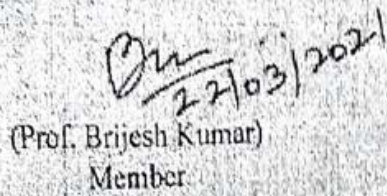 22/03/2021
(Prof. Brijesh Kumar)
Member